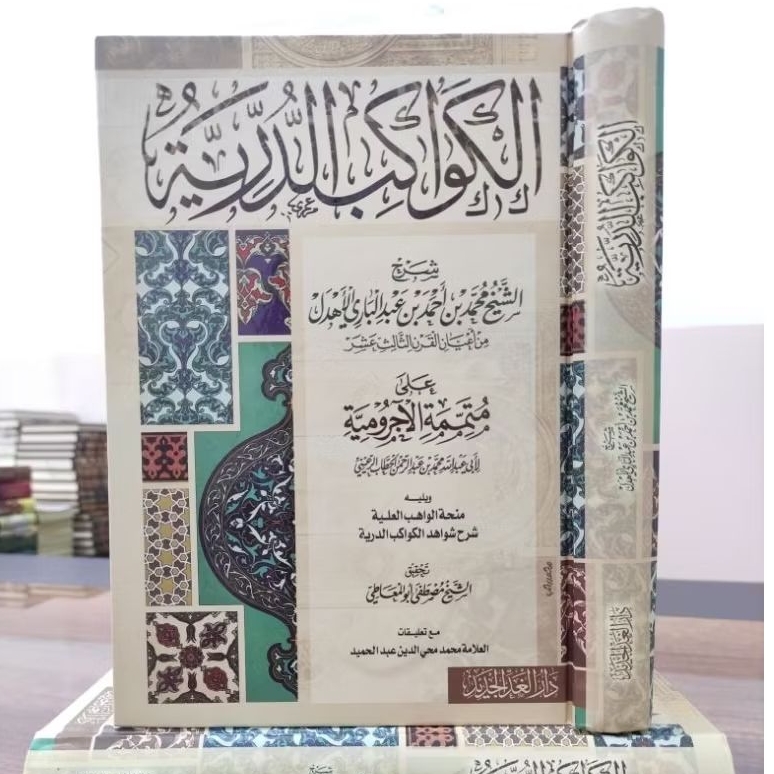 الكَوَاكِبُ الدُّرِّيَّةُ
شَرْح
الشَّيْخُ مُحَمَّد بْنُ أَحْمَد بْنُ عَبْد البَارِي الأَهْدَل
مِنْ أَعْيَان القَرْن الثَّالِث عَشَر
عَلَى
مُتَمِّمَةِ الآجُرُّومِيَّة
لأبي عبد الله محمد بن عبد الرحمن الحطاب الرعيني
ويليه
منحة الواهب العلية
شرح شواهد الكواكب الدرية
تحقيق
الشيخ مصطفى أبو المعاطي
مع تعليقات
العلامة محمد محي الدين عبد الحميد
دار الغد الجديد
الكَوَاكِبُ الدُّرِّيَّةُ
دار الغد الجديد
شرح
الكَوَاكِبُ الدُّرِّيَّةُ